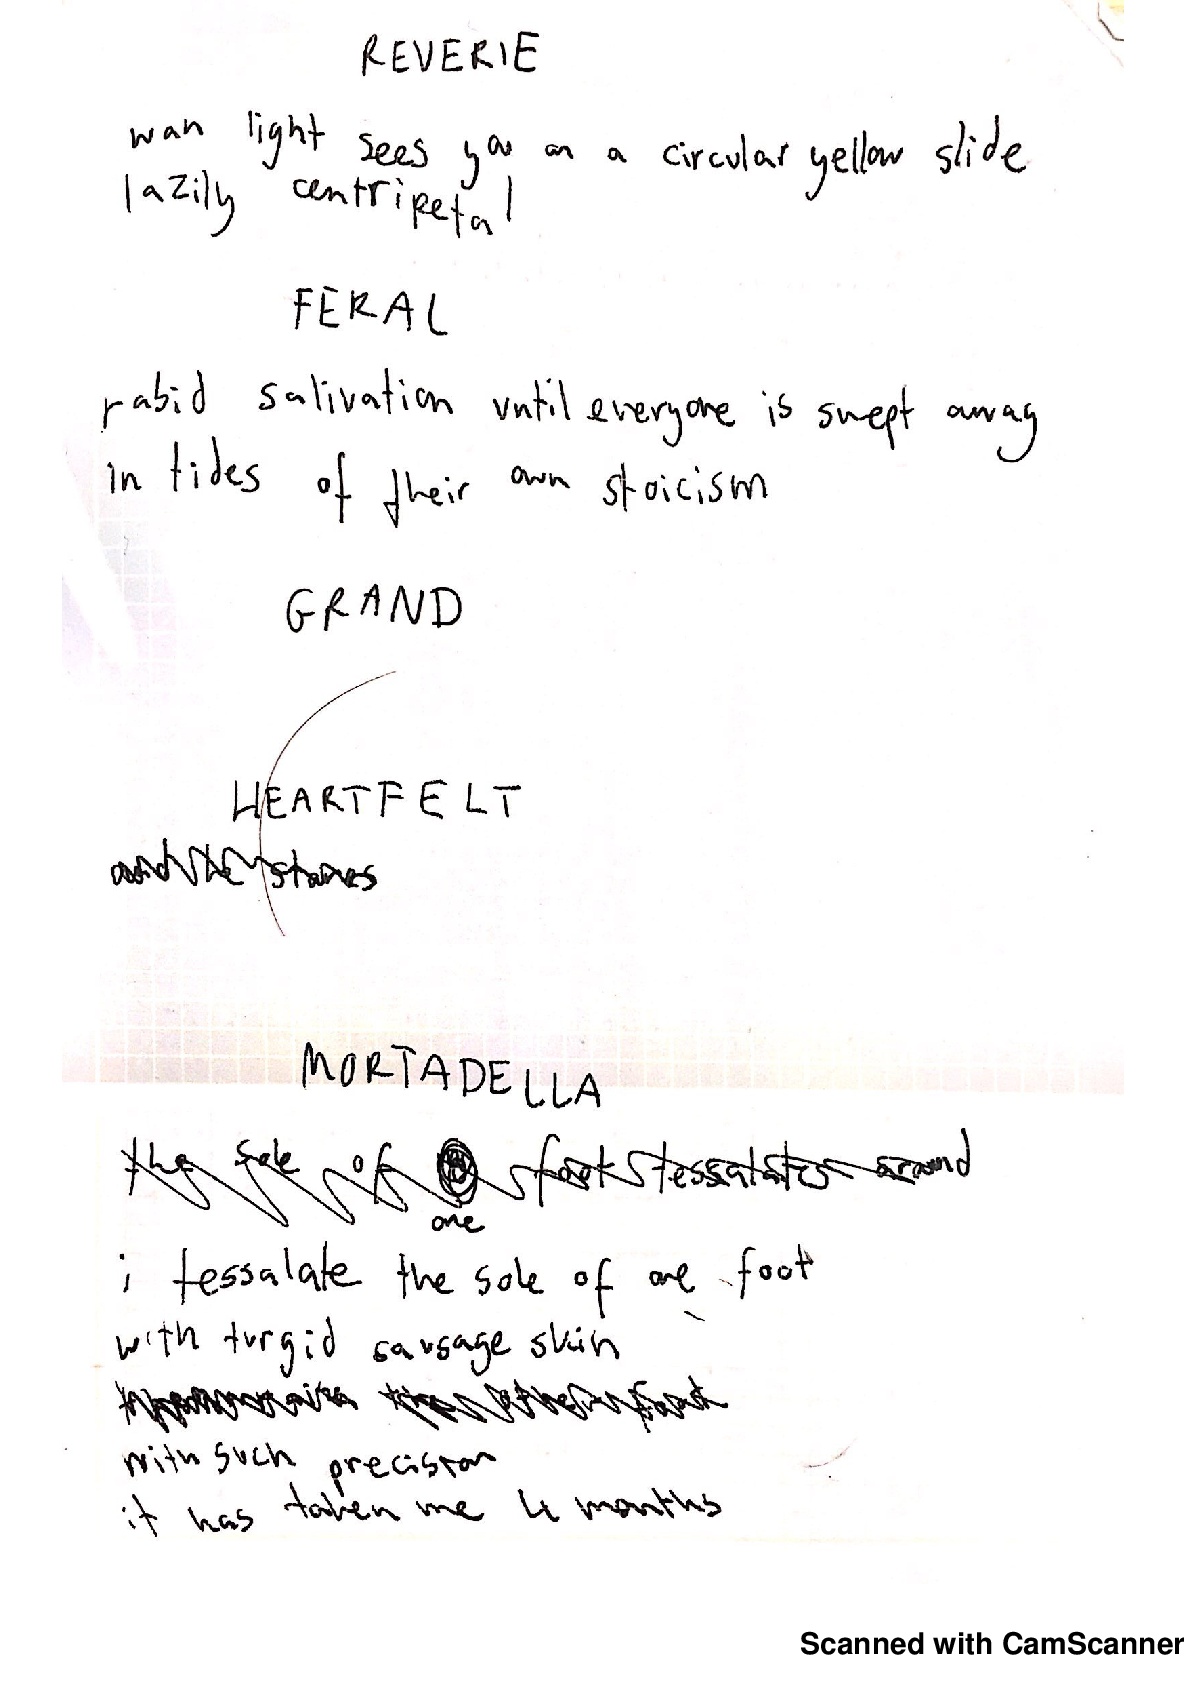 REVERIE
wan light sees you on a circular yellow slide
lazily centripetal
FERAL
rabid salivation until everyone is swept away
in tides of their own stoicism
GRAND
HEARTFELT
and the
MORTADELLA
the sole of foot tessalates around
one
i tessalate the sole of one foot
with turgid sausage skin
with such precision
it has taken me 4 months
Scanned with CamScanner